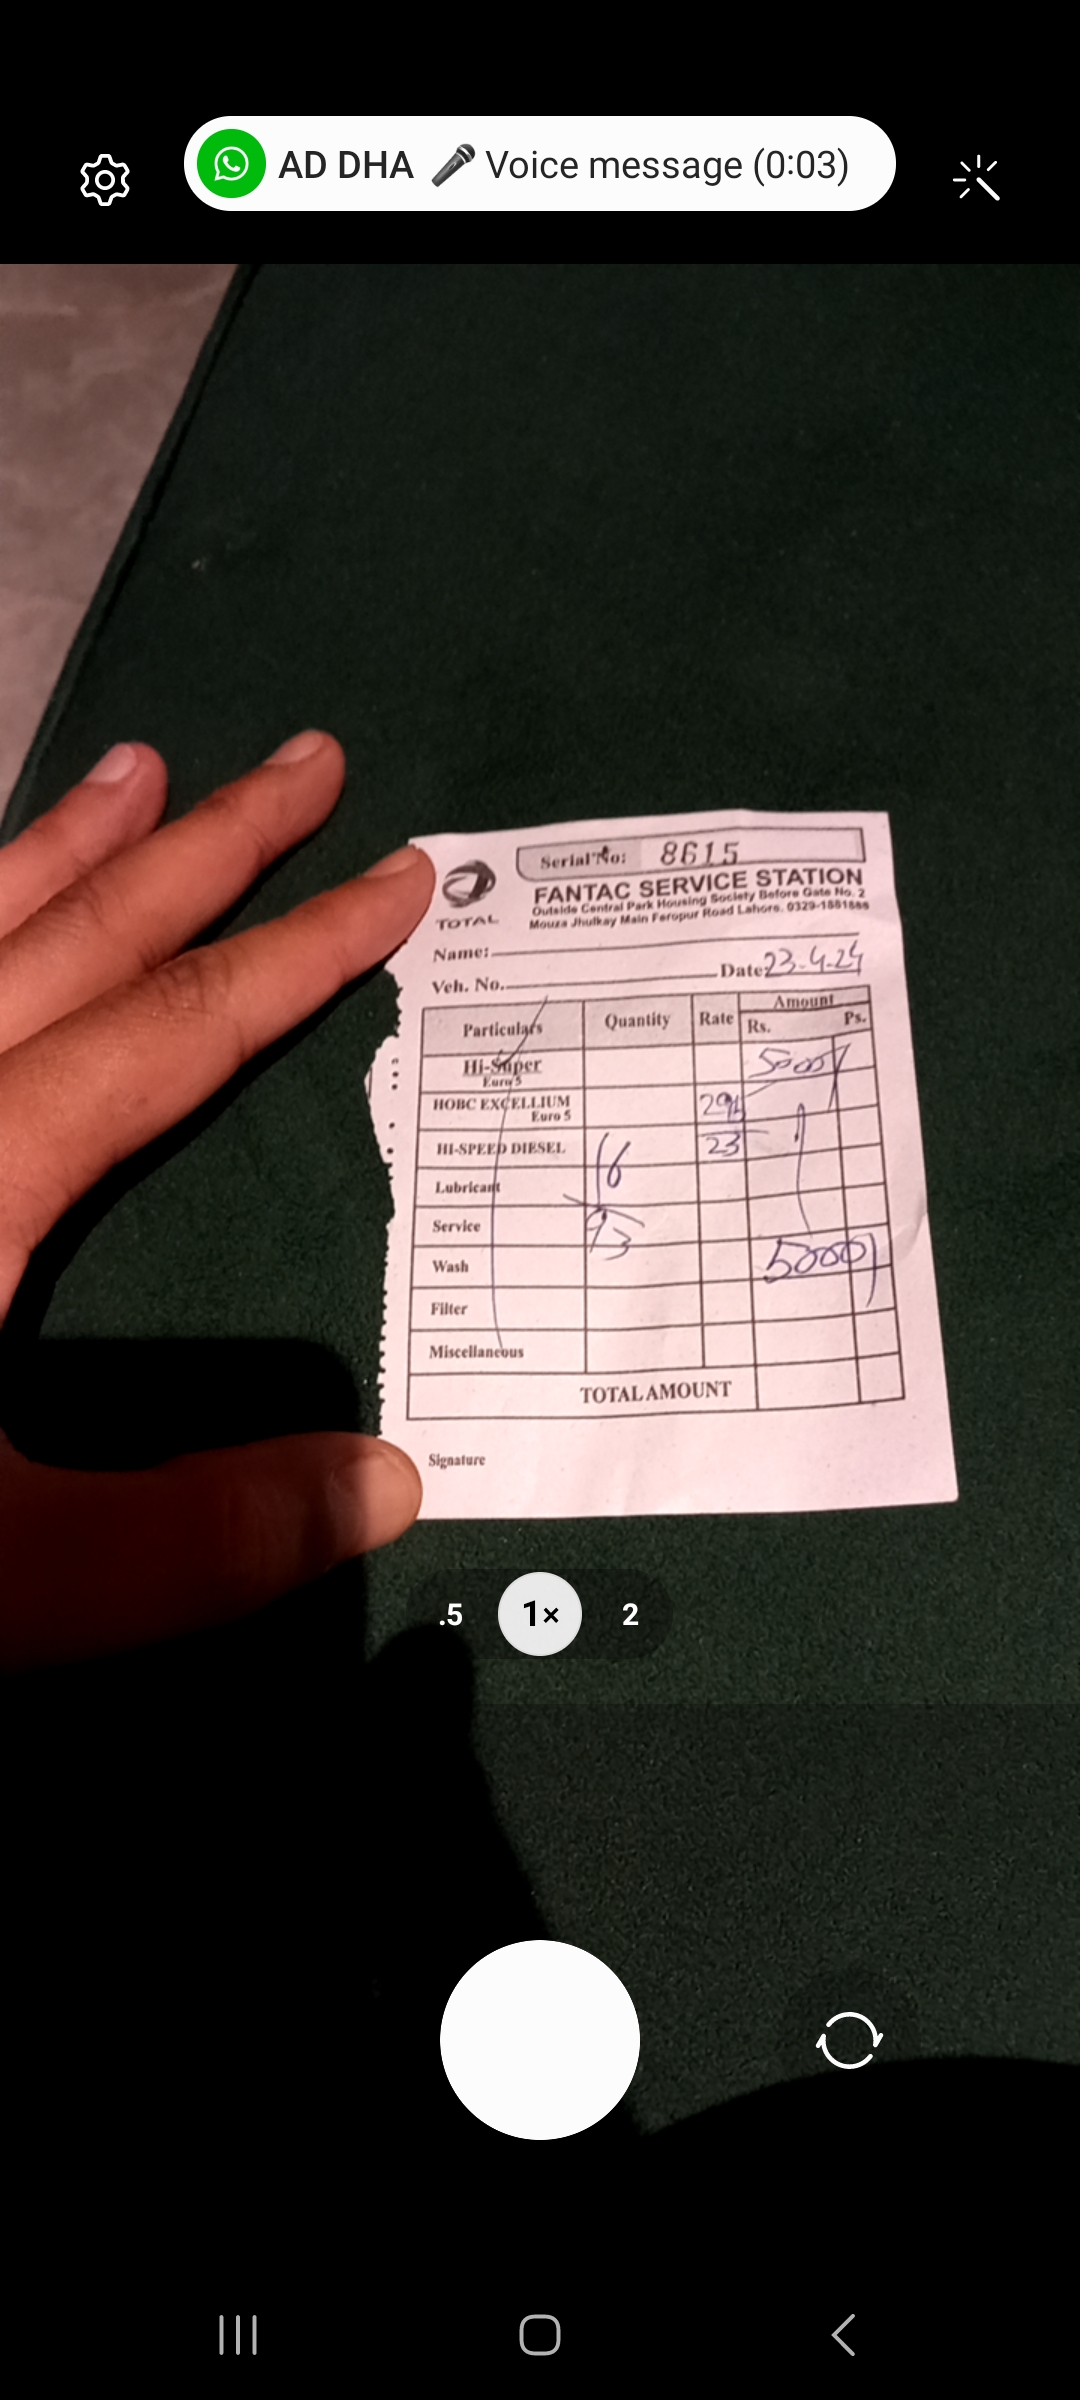 AD DHA 🎤 Voice message (0:03)
Serial No: 8615
TOTAL
FANTAC SERVICE STATION
Outside Central Park Housing Society Before Gate No. 2
Mouza Jhulkay Main Feropur Road Lahore. 0329-1881888
Name:
Veh. No. Date: 23-4-24
Particulars Quantity Rate Amount
Rs. Ps.
Hi-Super 5000/
Euro 5
HOBC EXCELLIUM 294
Euro 5
HI-SPEED DIESEL 16 23
Lubricant
Service 93
Wash 5000/
Filter
Miscellaneous
TOTAL AMOUNT
Signature
.5 1× 2